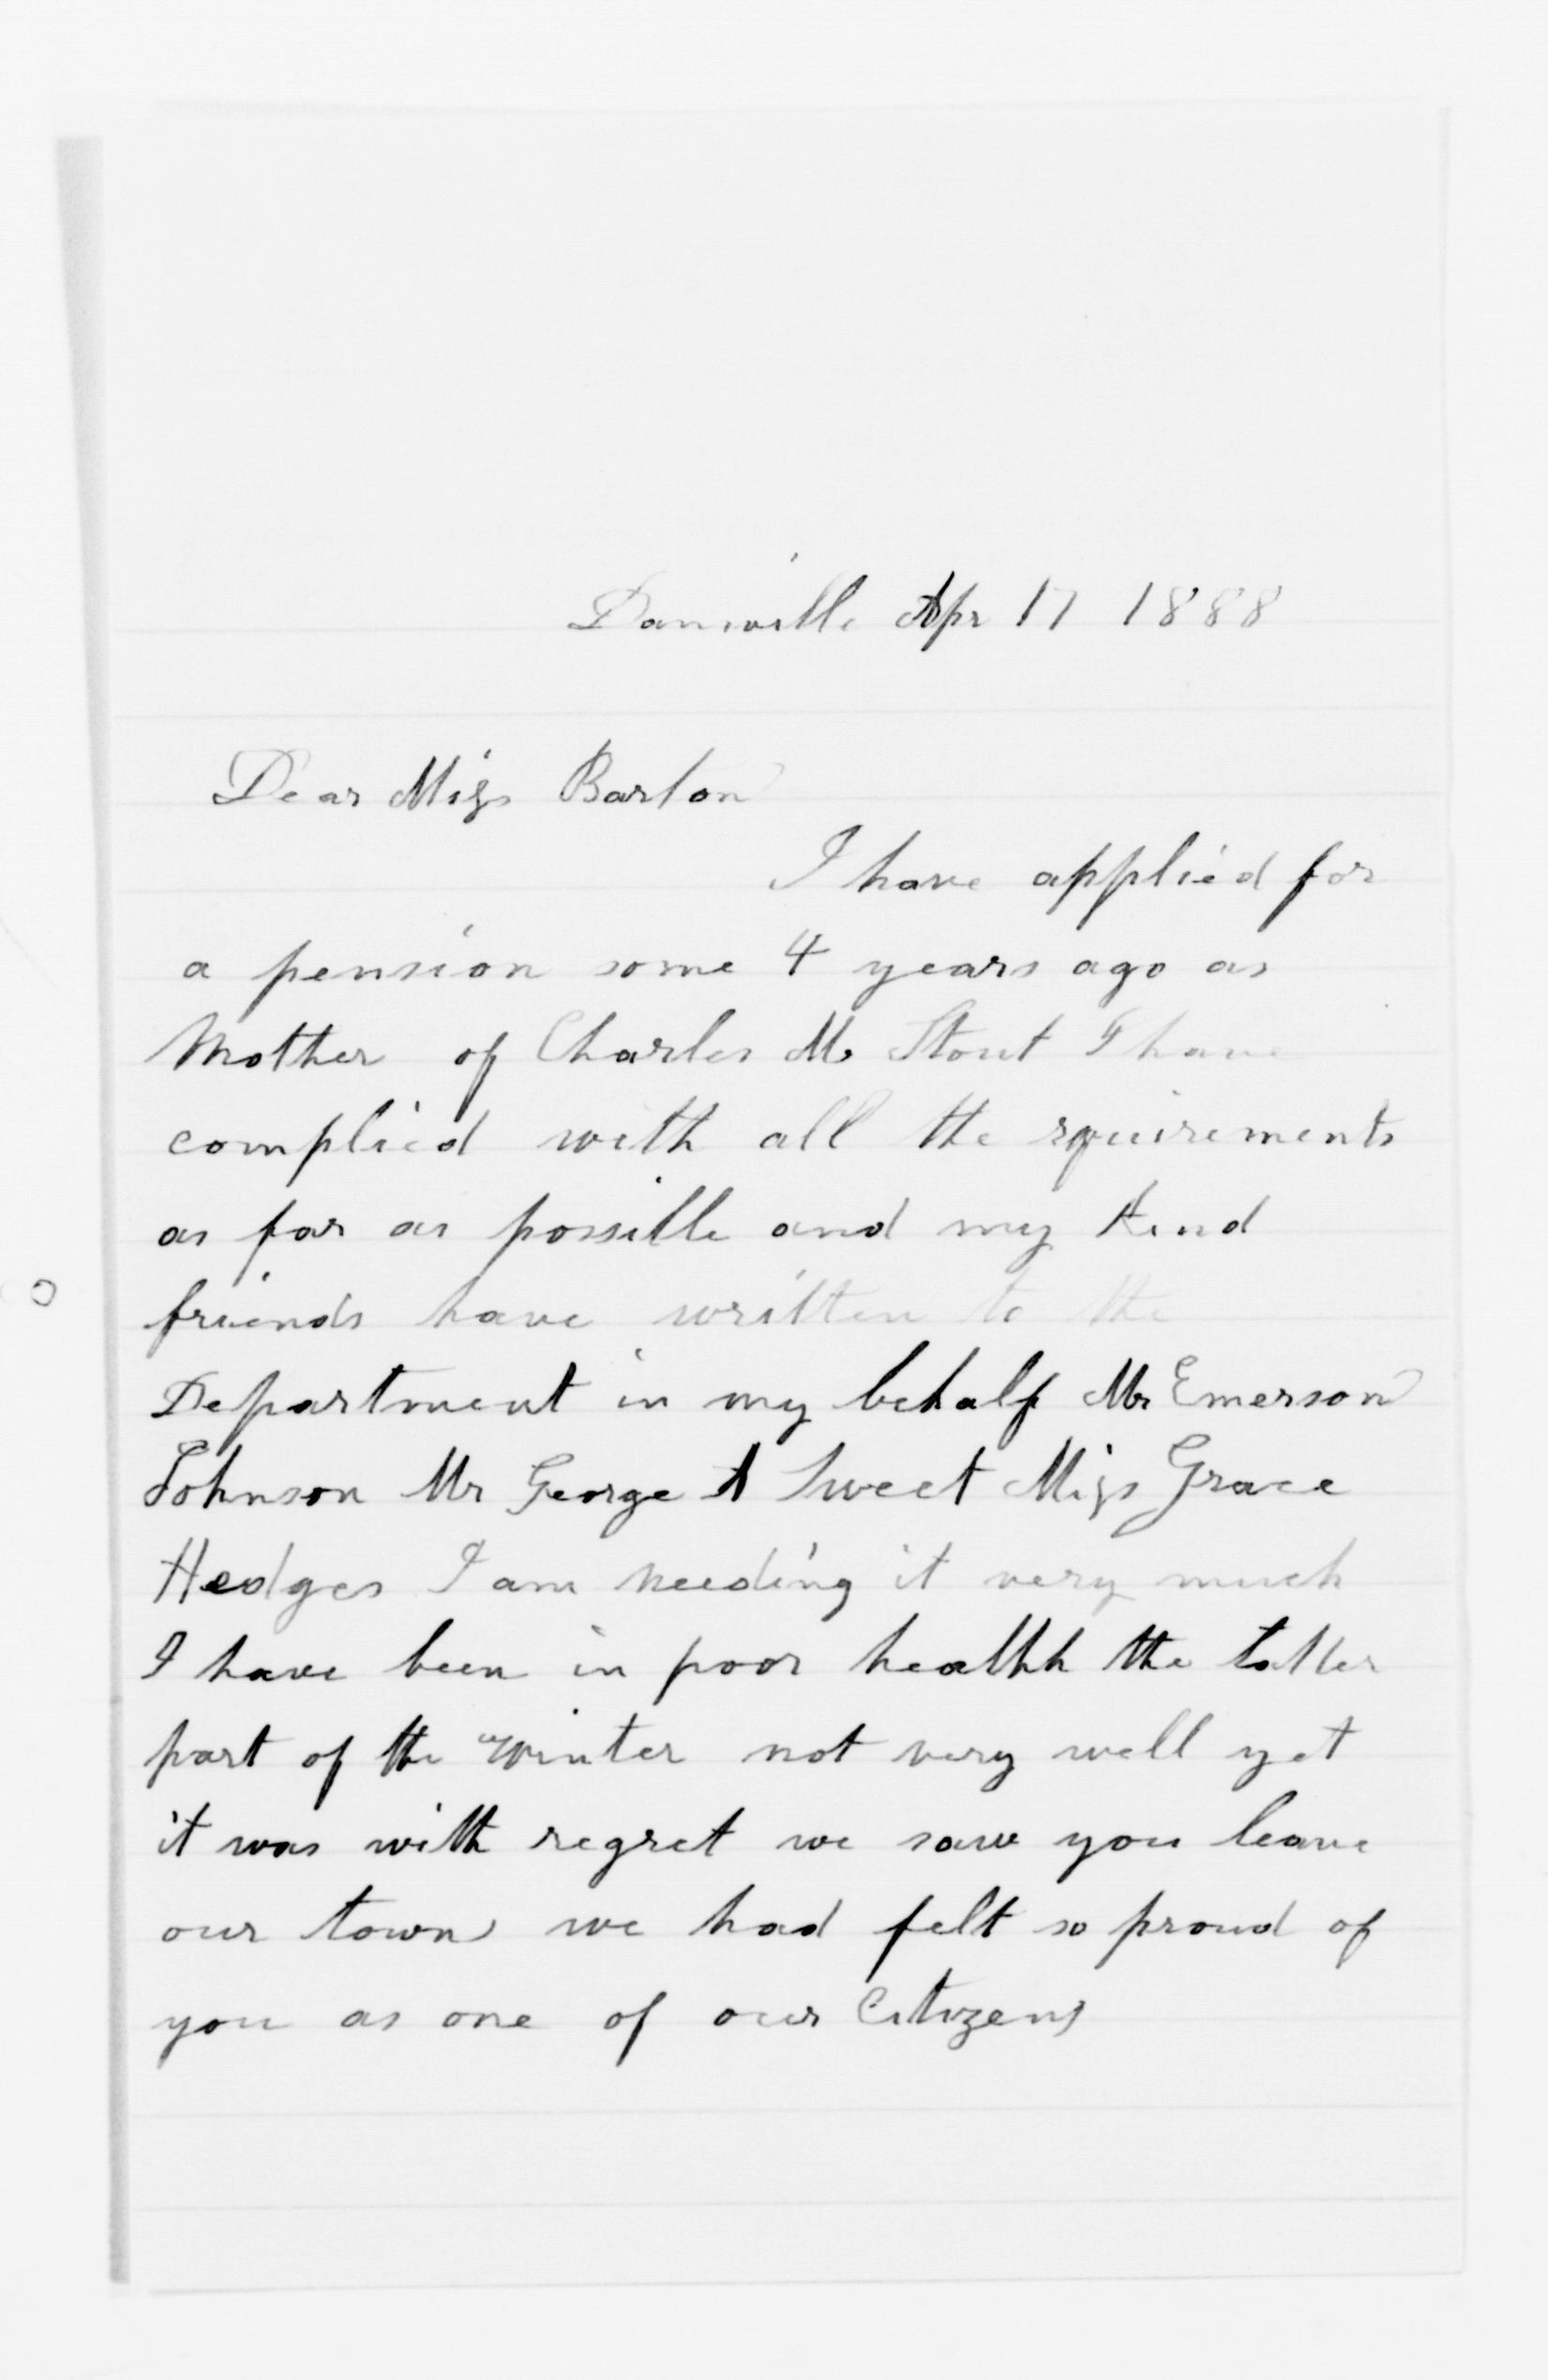 Dansville Apr 17 1888
Dear Miss Barton
I have applied for
a pension some 4 years ago as
Mother of Charles M Stout I have
complied with all the rquirements
as far as possille and my Kind
friends have written to the
Department in my behalf Mr Emerson
Johnson Mr George A Sweet Miss Grace
Hedges I am needing it very much
I have been in poor healhh the latter
part of the winter not very well yet
it was with regret we saw you leave
our town we had felt so proud of
you as one of our Citizens